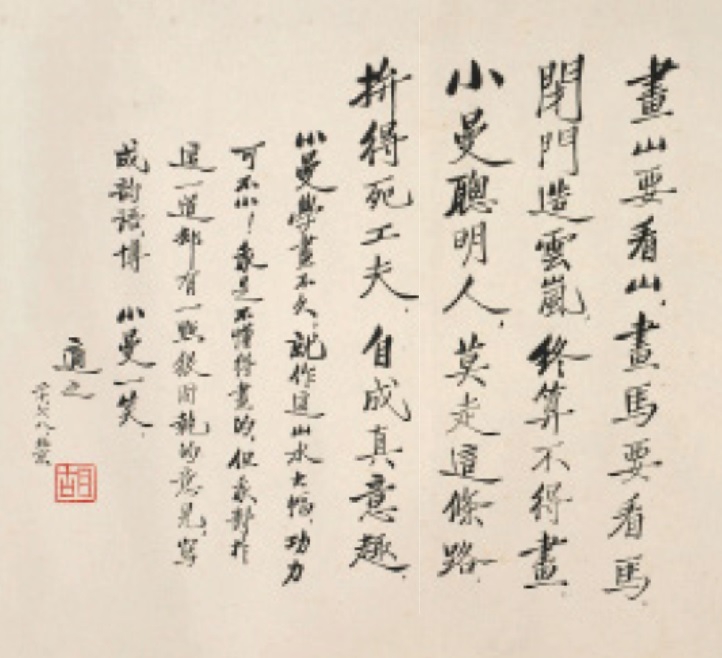 畫山要看山，畫馬要看馬，
閉門造雲嵐，終算不得畫．
小曼聰明人，莫走這條路．
拚得死工夫，自成真意趣．
小曼學畫不久，就作這山水大幅，功力
可不小！我是不懂得畫的，但我對於
這一道卻有一點很固執的意見，寫
成韵語，博　小曼一笑．
適之
二十、七、八，北京
胡